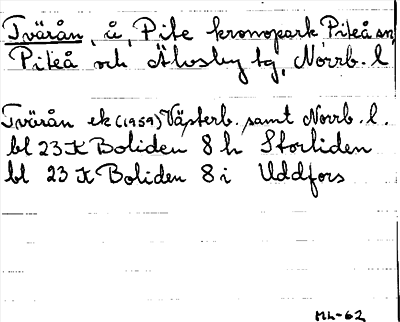 Tvärån, å, Pite kronopark Piteå sn,
Piteå och Älvsby tg, Norrb. l
Tvärån ek (1959) Västerb. samt Norrb. l.
bl 23 K Boliden 8 h Storliden
bl 23 K Boliden 8 i Uddfors
ML-62